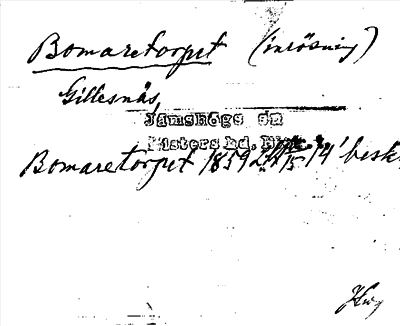 Bomaretorpet (inrösning)
Gillesnäs,
Jämshögs sn
Listers hd.
Bomaretorpet 1859 14 besk